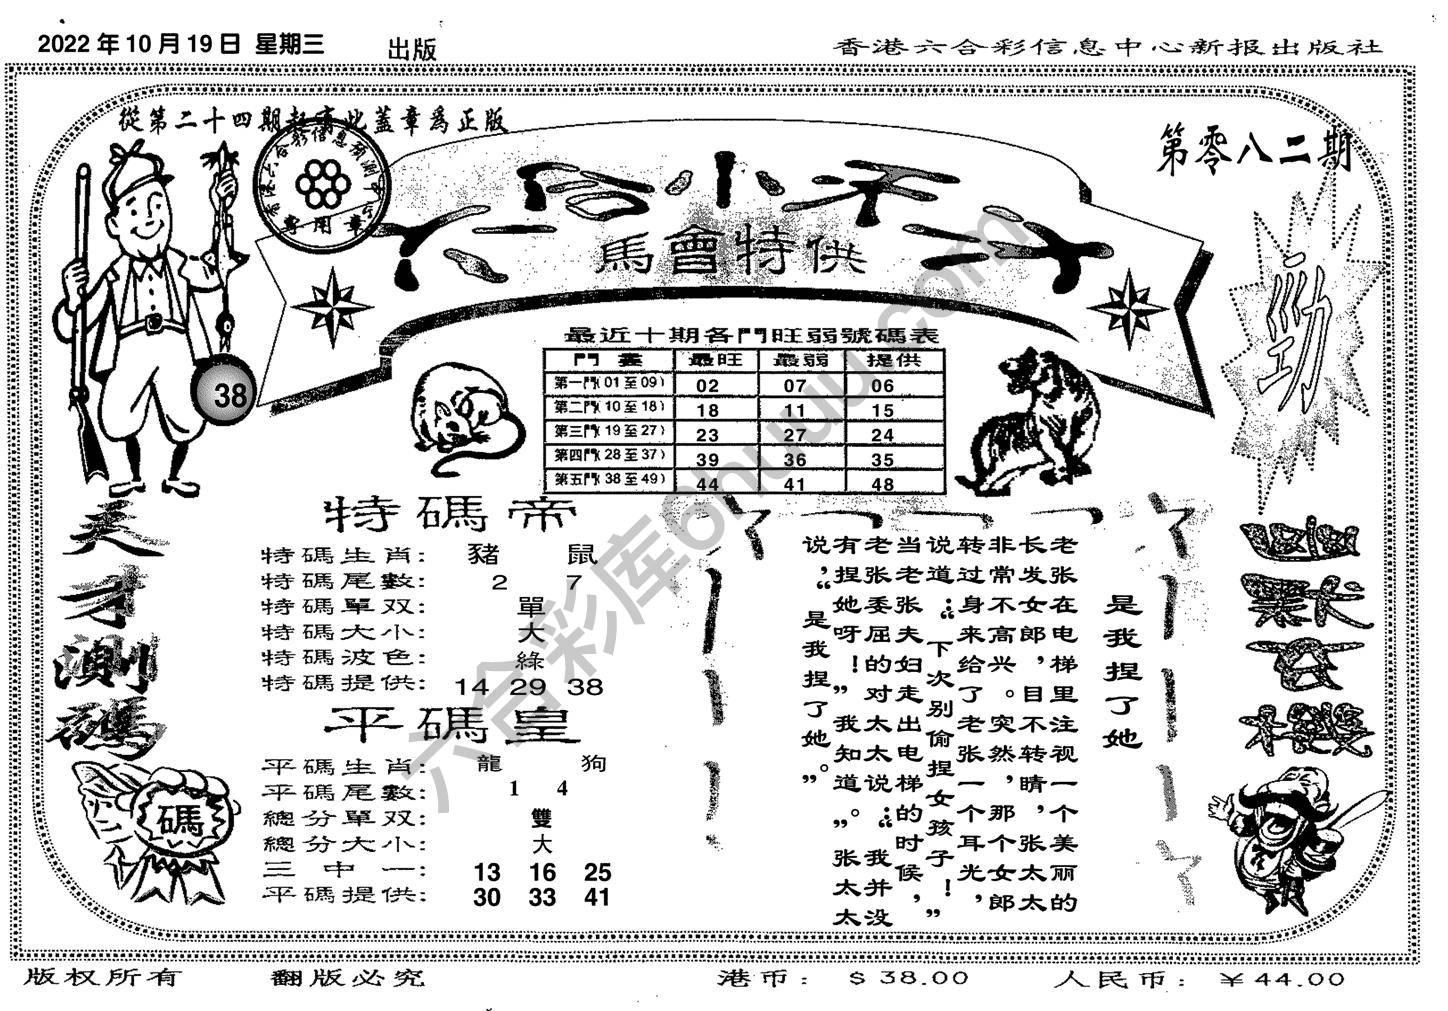 2022 年 10 月 19 日 星期三
出版
香港六合彩信息中心新报出版社
從第二十四期起有此蓋章爲正版
專用章
第零八二期
六合小天才
馬會特供
勁
38
最近十期各門旺弱號碼表
門 最旺 最弱 提供
第一門(01至09) 02 07 06
第二門(10至18) 18 11 15
第三門(19至27) 23 27 24
第四門(28至37) 39 36 35
第五門(38至49) 44 41 48
天才測碼
特碼帝
特碼生肖: 豬 鼠
特碼尾數: 2 7
特碼單双: 單
特碼大小: 大
特碼波色: 綠
特碼提供: 14 29 38
平碼皇
平碼生肖: 龍 狗
平碼尾數: 1 4
總分單双: 雙
總分大小: 大
三中一: 13 16 25
平碼提供: 30 33 41
碼
是我捏了她
老张在电梯里注视一个美丽的
长发女郎,目不转睛,张太太
非常不高兴。突然,那个女郎
转过身来给了老张一个耳光,
说道:“下次别偷捏女孩子!”
当老张夫妇走出电梯的时候,
老张委屈的对太太说:“我并没
有捏她呀!”“我知道。”张太太
说,“是我捏了她。”
六合彩库6huuu.com
版权所有
翻版必究
港币: $38.00
人民币: ¥44.00